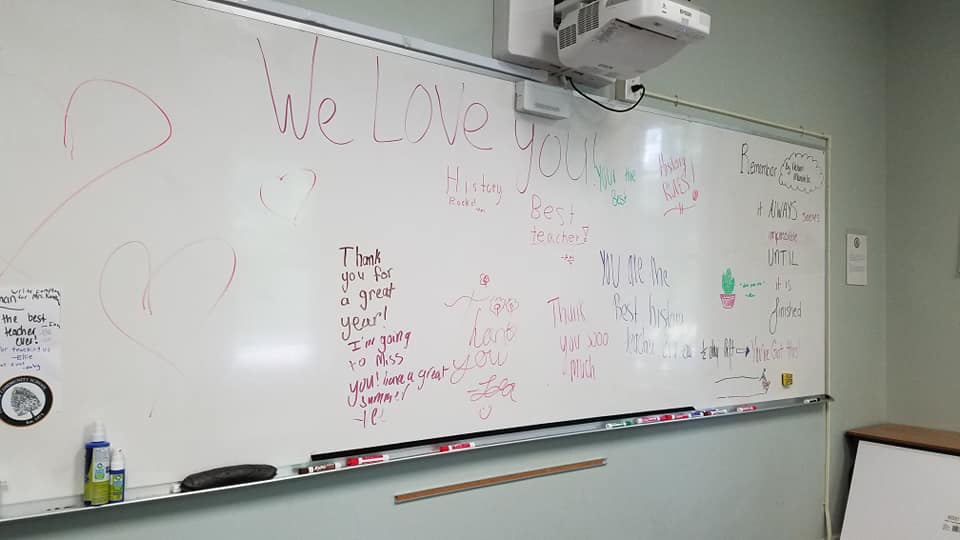 We Love you!
History
Rocks!
Best
teacher!
Your the
Best
History
Rules!
Remember
it ALWAYS seems
impossible
UNTIL
it is
finished
You've Got this!
Thank
you for
a great
year!
I'm going
to Miss
you! have a great
summer!
you
Thank
you sooo
much
You are the
Best history
teacher
write
the best
teacher
ever!
-Ellie
EPSON